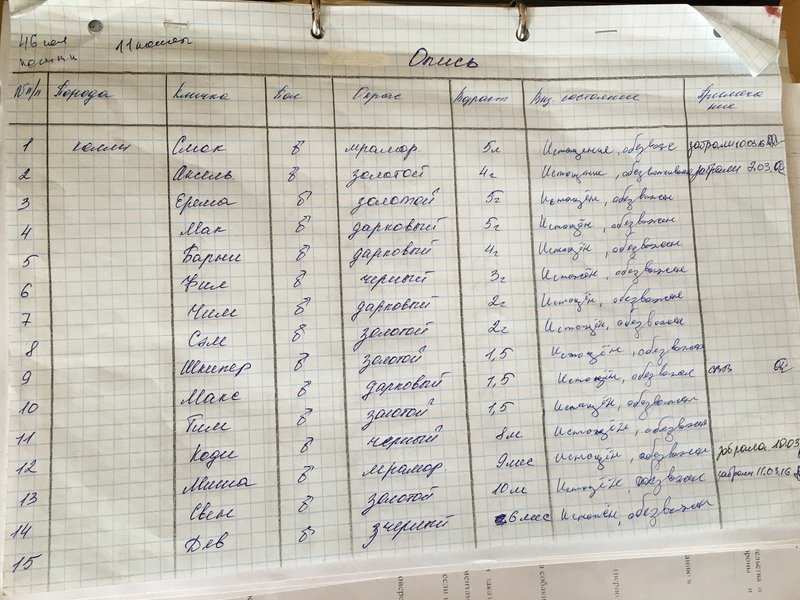 46 кол 11 комн
Опись
№ п/п Порода Кличка Пол Окрас Возраст Виз. состояние Примечание
1 колли Смок ♂ мрамор 5л Истощение, обезвож забрали
2 Аксель ♂ золотой 4г Истощение, обезвоживание забрали 9.03
3 Ерема ♂ золотой 5г Истощён, обезвожен
4 Мак ♂ дарковый 5г Истощён, обезвожен
5 Барни ♂ дарковый 4г Истощён, обезвожен
6 Фил ♂ черный 3г Истощён, обезвожен
7 Чим ♂ дарковый 2г Истощён, обезвожен
8 Сэм ♂ золотой 2г Истощён, обезвожен
9 Шкипер ♂ золотой 1,5 Истощён, обезвожен
10 Макс ♂ дарковый 1,5 Истощён, обезвожен
11 Тим ♂ золотой 1,5 Истощён, обезвожен
12 Коди ♂ черный 8м Истощён, обезвожен
13 Миша ♂ мрамор 9мес Истощён, обезвожен забрала 10.03
14 Свен ♂ золотой 10м Истощён, обезвожен забрали 11.03.16
15 Дев ♂ 6 мес Истощён, обезвожен